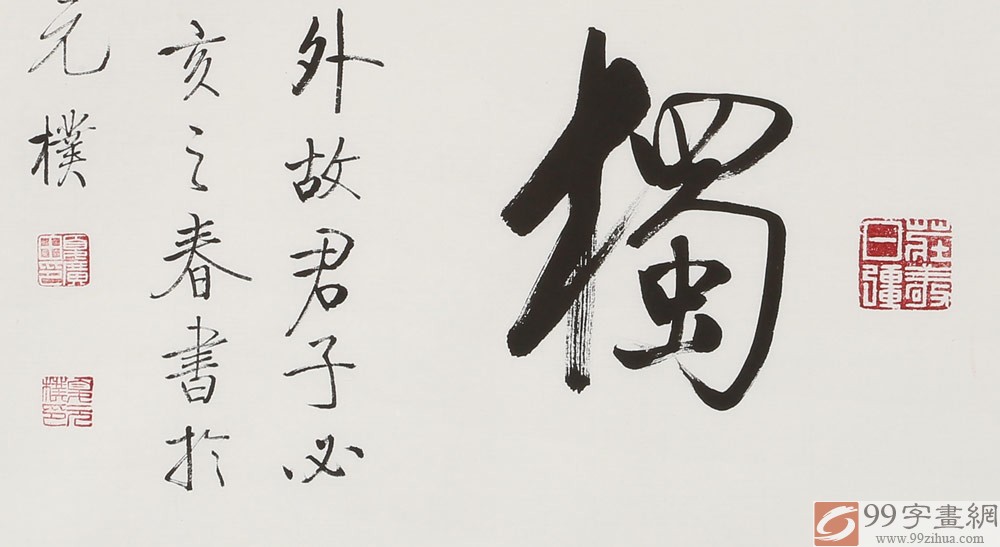 莊敬日強
獨
外故君子必
亥之春書於
元樸
99字畫網
www.99zihua.com